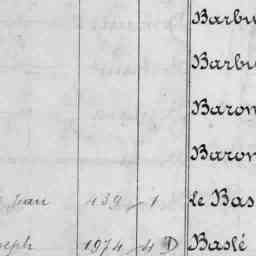 Barbi
Barbi
Baron
Baron
Jean 439 1 le Bas
seph 1974 4 D Baslé